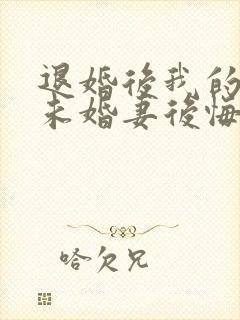 退婚後我的
未婚妻後悔
哈欠兄